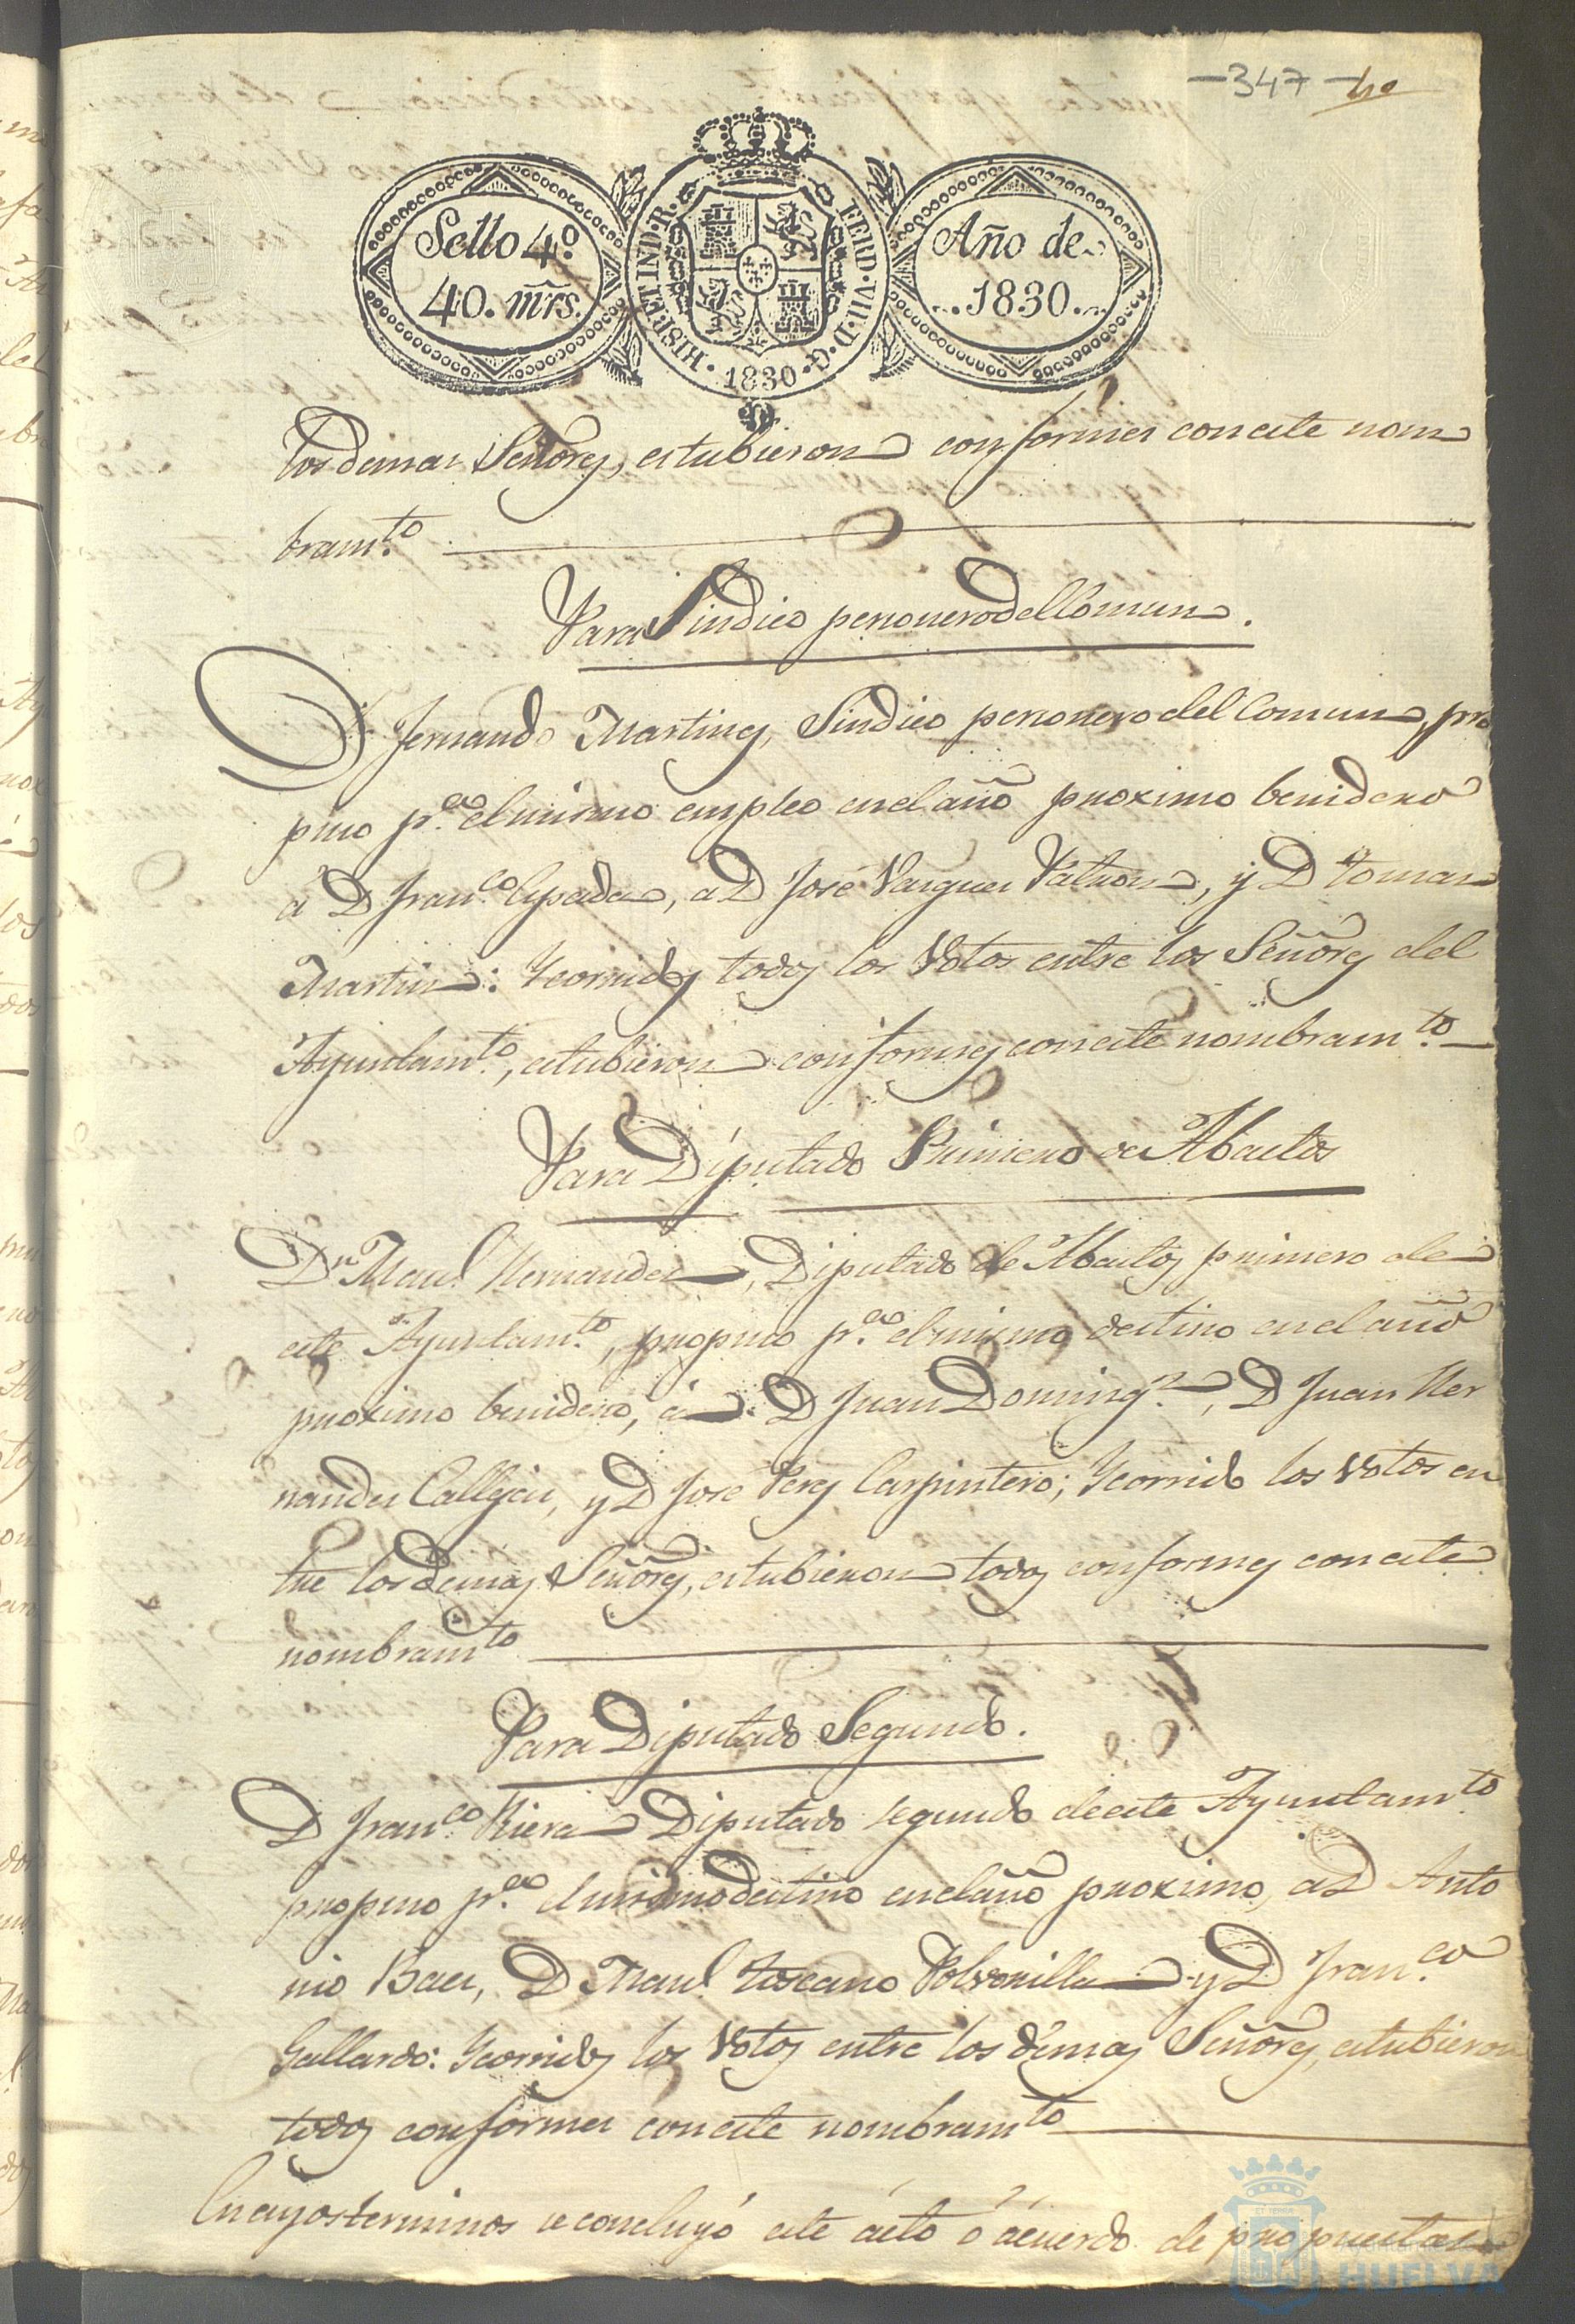 -347-
Sello 4.º
40. mrs.
HISP. ET IND. R. FERD. VII. D. G. 1830
Año de
1830.
los demas Señores, estubieron conformes con este nom
bram.to
Para Sindico personero del Comun.
D. Fernando Martines, Sindico personero del Comun, pro
puso p.a el mismo empleo en el año proximo benidero
á D Fran.co Espada, a D José Vasques Patron, y D tomas
Martin: Ycorridos todos los Votos entre los Señores del
Ayuntam.to, estubieron conformes con este nombram.to
Para Diputado Primero de Abastos
D.n Man.l Hernandes, Diputado de Abastos primero de
este Ayuntam.to, propuso p.a el mismo destino en el año
proximo benidero, á D Juan Doming.z, D Juan Her
nandes Calleja, y D José Peres Carpintero; Ycorrido los Votos en
tre los demas Señores, estubieron todos conformes con este
nombram.to
Para Diputado Segundo.
D Fran.co Riera Diputado segundo de este Ayuntam.to
propuso p.a el mismo destino en el año proximo, a D Anto
nio Baes, D Man.l toscano Polvorilla y D Fran.co
Gallardo: Ycorridos los Votos entre los demas Señores, estubieron
todos conformes con este nombram.to
En cuyos terminos se concluyó este acto ó acuerdo de propuestas
HUELVA